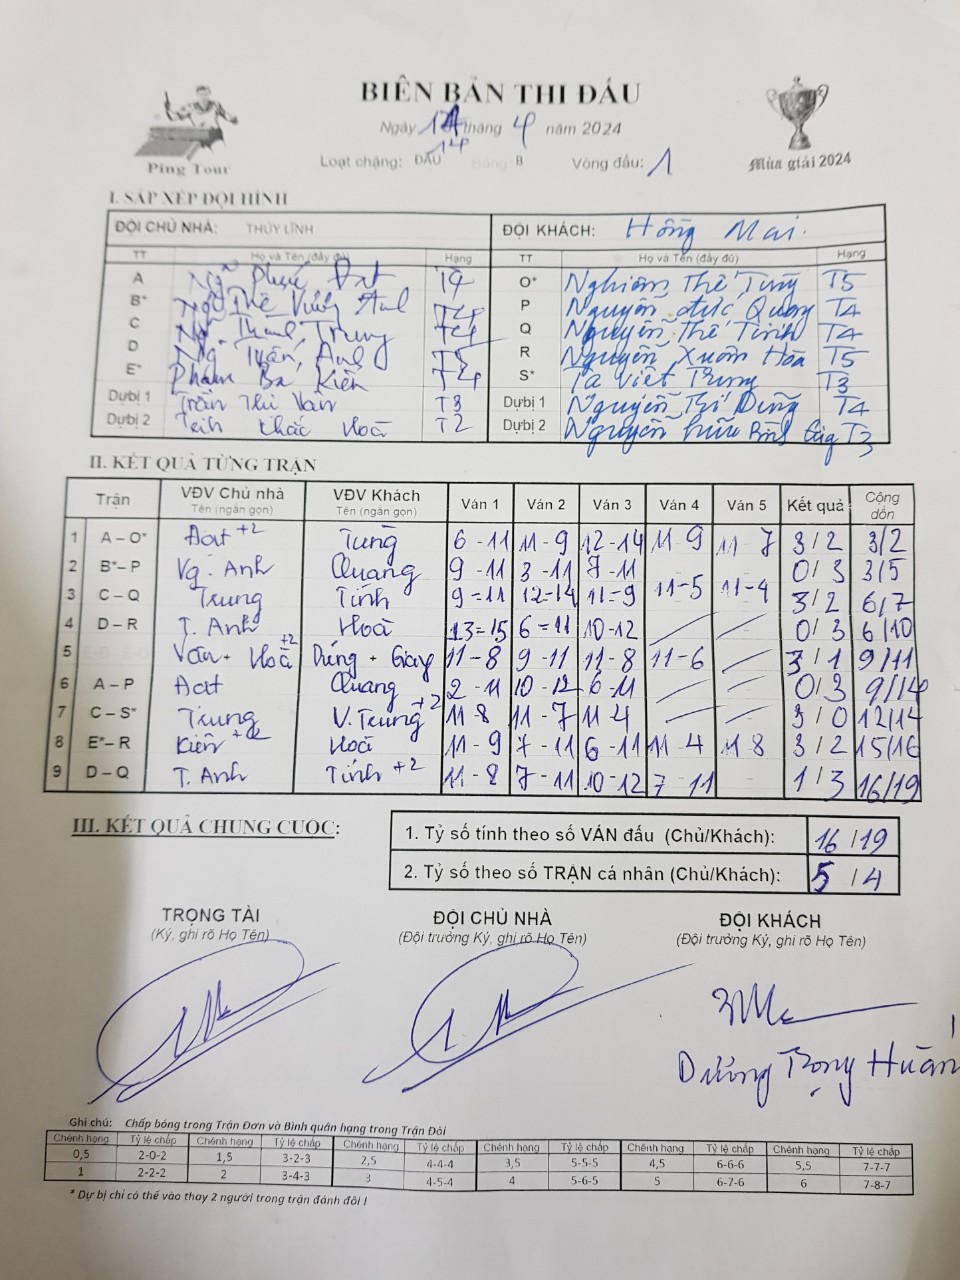 BIÊN BẢN THI ĐẤU
Ngày 14 tháng 4 năm 2024
Ping Tour
Loạt chặng: ĐẤU Bảng: B Vòng đấu: 1
Mùa giải 2024
I. SẮP XẾP ĐỘI HÌNH
ĐỘI CHỦ NHÀ: THÚY LĨNH ĐỘI KHÁCH: Hồng Mai.
TT Họ và Tên (đầy đủ) Hạng TT Họ và Tên (đầy đủ) Hạng
A O* Nghiêm Thế Tùng T5
B* Ngô Thế Vương Anh P Nguyễn Đức Quang T4
C Ng. Thành Trung Q Nguyễn Thế Tính T4
D Ng. Tuấn Anh T5 R Nguyễn Xuân Hòa T5
E* Phạm Bá Kiên S* Tạ Việt Trung T3
Dự bị 1 Trần Thi Vân T3 Dự bị 1 Nguyễn Trí Dũng T4
Dự bị 2 Khắc Hoà T2 Dự bị 2 Nguyễn Hữu T3
II. KẾT QUẢ TỪNG TRẬN
Trận VĐV Chủ nhà Tên (ngắn gọn) VĐV Khách Tên (ngắn gọn) Ván 1 Ván 2 Ván 3 Ván 4 Ván 5 Kết quả Cộng dồn
1 A – O* Đạt +2 Tùng 6 - 11 11 - 9 12 - 14 11 - 9 11 - 7 3/2 3/2
2 B* – P Vg. Anh Quang 9 - 11 3 - 11 7 - 11 0/3 3/5
3 C – Q Trung Tính 9 - 11 12 - 14 11 - 9 11 - 5 11 - 4 3/2 6/7
4 D – R T. Anh Hoà 13 - 15 6 - 11 10 - 12 0/3 6/10
5 Vân + Hoà +2 Dũng + Giang 11 - 8 9 - 11 11 - 8 11 - 6 3/1 9/11
6 A – P Đạt Quang 2 - 11 10 - 12 6 - 11 0/3 9/14
7 C – S* Trung V. Trung +2 11 - 8 11 - 7 11 - 4 3/0 12/14
8 E* – R Kiên +2 Hoà 11 - 9 7 - 11 6 - 11 11 - 4 11 8 3/2 15/16
9 D – Q T. Anh Tính +2 11 - 8 7 - 11 10 - 12 7 - 11 1/3 16/19
III. KẾT QUẢ CHUNG CUỘC:
1. Tỷ số tính theo số VÁN đấu (Chủ/Khách): 16/19
2. Tỷ số theo số TRẬN cá nhân (Chủ/Khách): 5/4
TRỌNG TÀI ĐỘI CHỦ NHÀ ĐỘI KHÁCH
(Ký, ghi rõ Họ Tên) (Đội trưởng Ký, ghi rõ Họ Tên) (Đội trưởng Ký, ghi rõ Họ Tên)
Dương Trọng Huấn
Ghi chú: Chấp bóng trong Trận Đơn và Bình quân hạng trong Trận Đôi
Chênh hạng Tỷ lệ chấp Chênh hạng Tỷ lệ chấp Chênh hạng Tỷ lệ chấp Chênh hạng Tỷ lệ chấp Chênh hạng Tỷ lệ chấp Chênh hạng Tỷ lệ chấp
0,5 2-0-2 1,5 3-2-3 2,5 4-4-4 3,5 5-5-5 4,5 6-6-6 5,5 7-7-7
1 2-2-2 2 3-4-3 3 4-5-4 4 5-6-5 5 6-7-6 6 7-8-7
* Dự bị chỉ có thể vào thay 2 người trong trận đánh đôi !